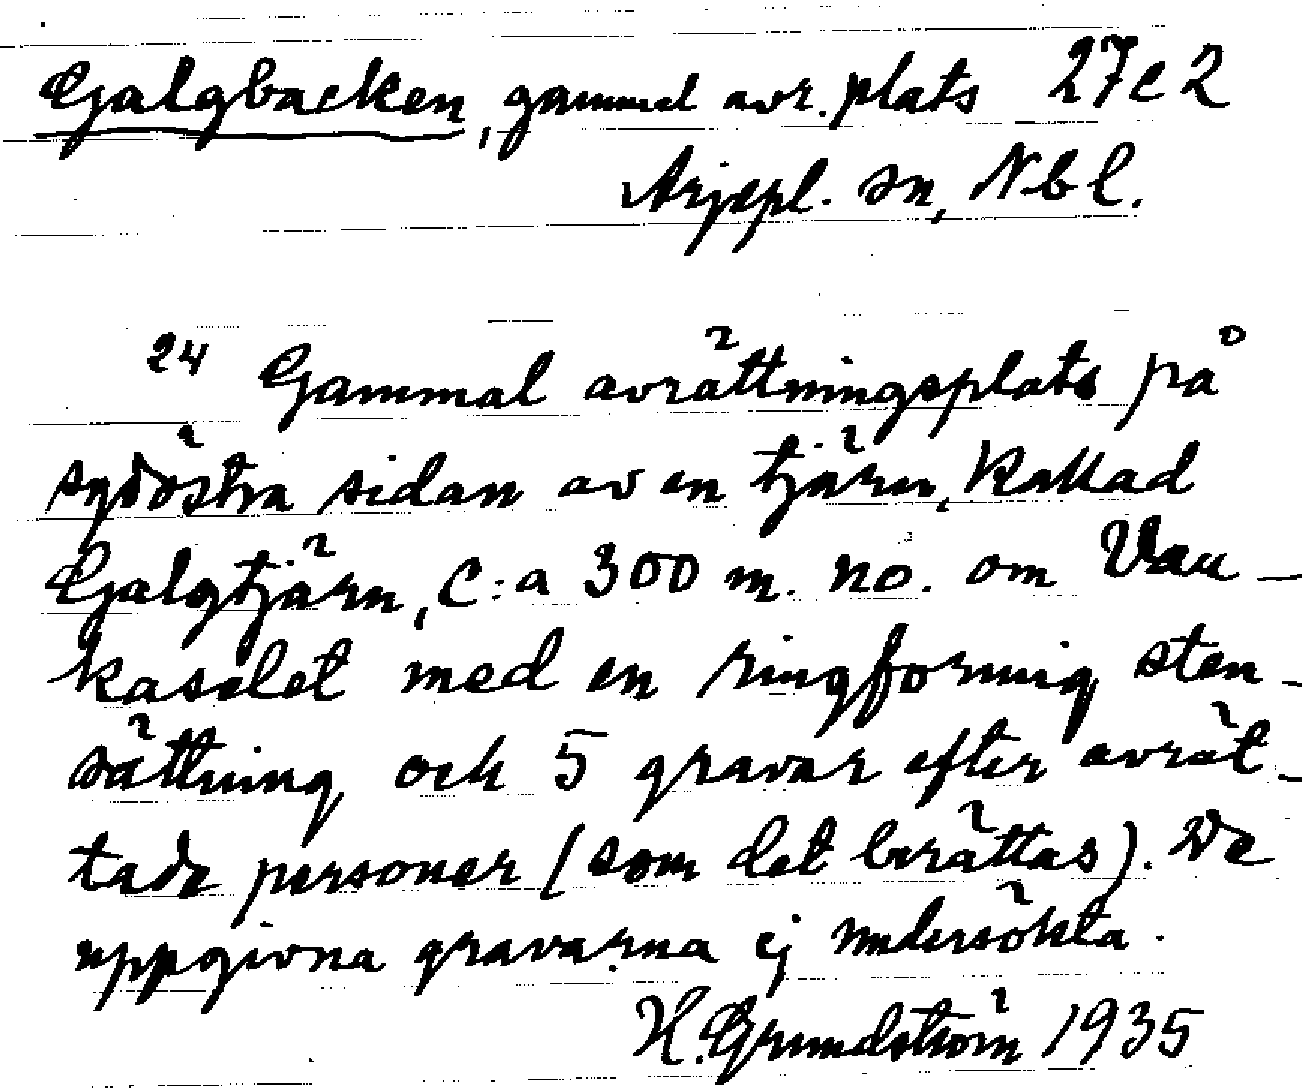 Galgbacken, gammal avr. plats 27c2
Arjepl. sn, Nbl.
24 Gammal avrättningsplats på
sydöstra sidan av en tjärn, kallad
Galgtjärn, c:a 300 m. no. om Vau-
kaselet med en ringformig sten-
sättning och 5 gravar efter avrät-
tade personer (som det berättas). De
uppgivna gravarna ej undersökta.
H. Grundström 1935